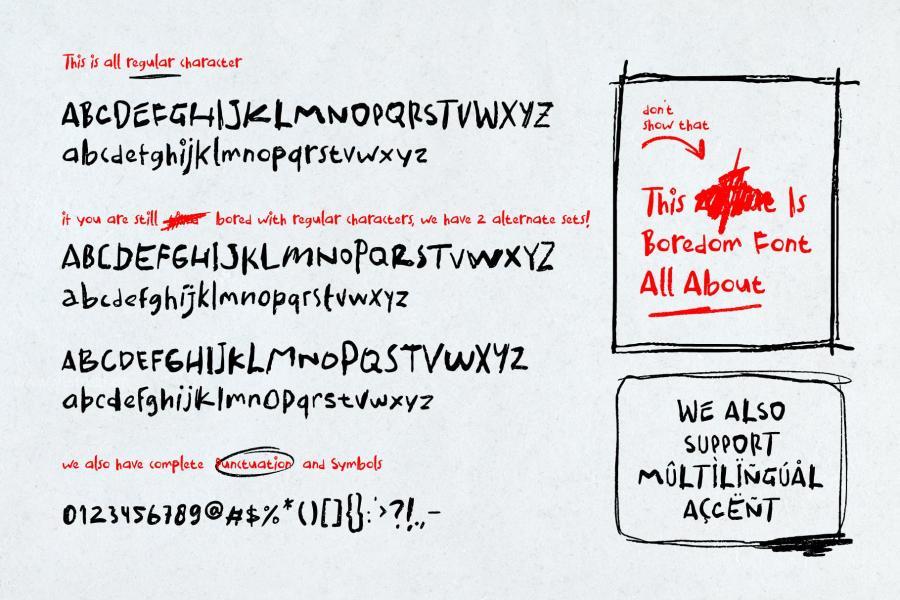 This is all regular character
ABCDEFGHIJKLMNOPQRSTVWXYZ
abcdefghijklmnopqrstvwxyz
if you are still bored with regular characters, we have 2 alternate sets!
ABCDEFGHIJKLMNOPQRSTVWXYZ
abcdefghijklmnopqrstvwxyz
ABCDEFGHIJKLMNOPQSTVWXYZ
abcdefghijklmnopqrstvwxyz
we also have complete Punctuation and Symbols
0123456789@#$%*()[]{}:>?!.,-
don't
show that
This Is
Boredom Font
All About
WE ALSO
SUPPORT
MÛLTÌLÏÑGÚÅL
AÇÇËÑT